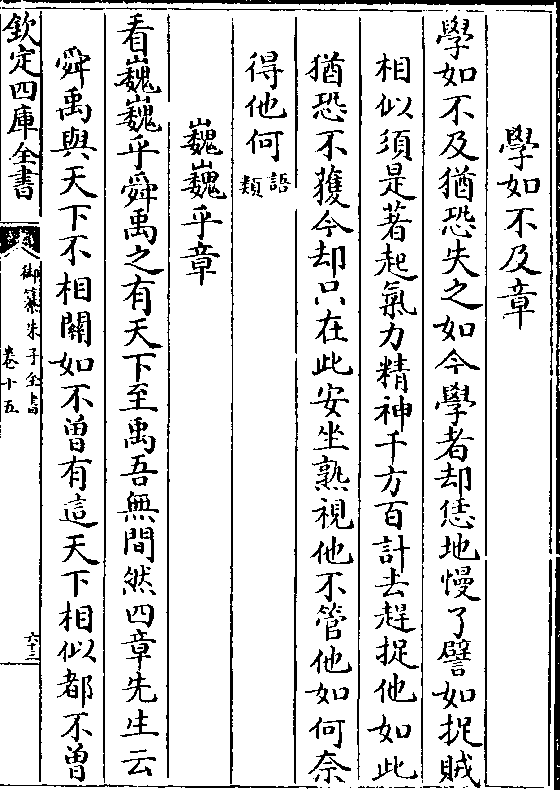 學如不及章
學如不及猶恐失之如今學者却恁地慢了譬如捉賊
相似須是著起氣力精神千方百計去趕捉他如此
猶恐不獲今却只在此安坐熟視他不管他如何奈
得他何語類
巍巍乎章
看巍巍乎舜禹之有天下至禹吾無間然四章先生云
舜禹與天下不相關如不曾有這天下相似都不曾
欽定四庫全書
御纂朱子全書
卷十五
六十三